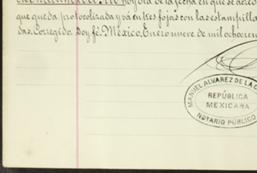 hoy día de la fecha en que se
que queda protocolizada y vá en tres fojas con las estampillas
das. Corregido. Doy fé. México, Enero nueve de mil ochocien
MANUEL ALVAREZ DE LA C
REPÚBLICA
MEXICANA
NOTARIO PÚBLICO